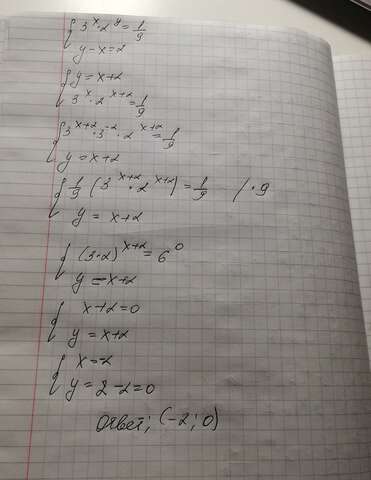 { 3^x · 2^y = 1/9
y - x = 2
{ y = x+2
3^x · 2^(x+2) = 1/9
{ 3^(x+2) · 3^(-2) · 2^(x+2) = 1/9
y = x+2
{ 1/9 (3^(x+2) · 2^(x+2)) = 1/9 / · 9
y = x+2
{ (3·2)^(x+2) = 6^0
y = x+2
{ x+2=0
y = x+2
{ x=-2
y = 2-2=0
Ответ: (-2; 0)